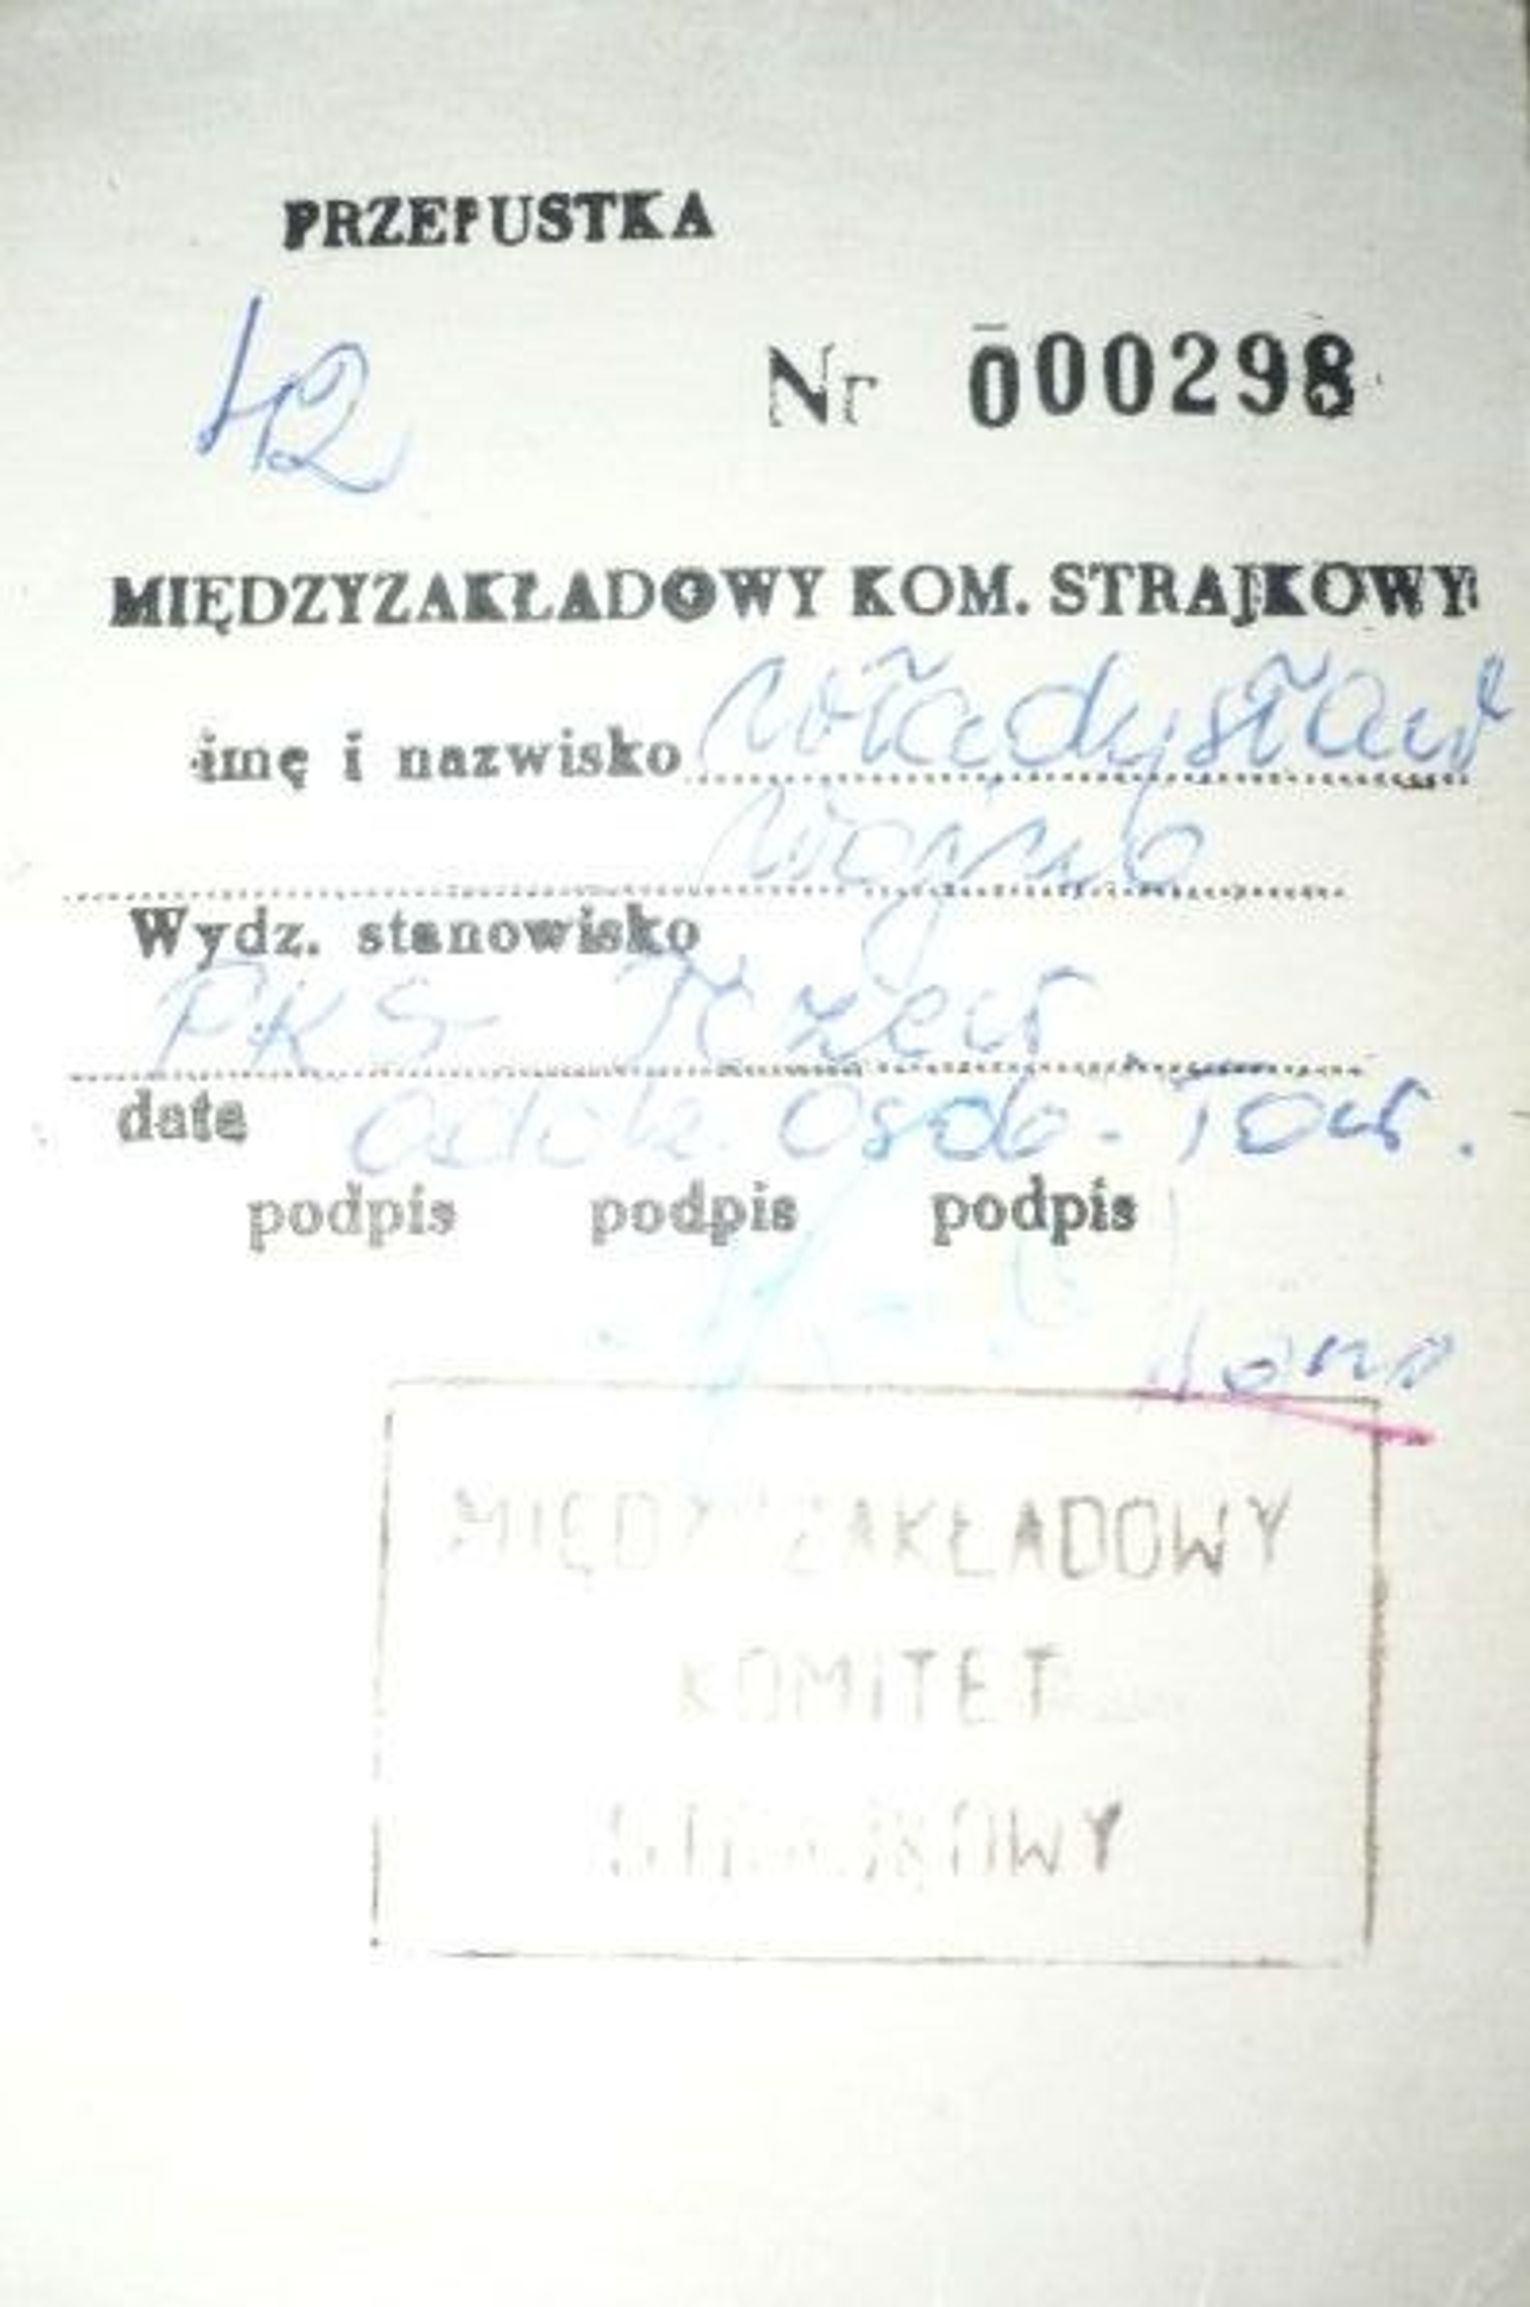 PRZEPUSTKA
42
Nr 000298
MIĘDZYZAKŁADOWY KOM. STRAJKOWY
imę i nazwisko Władysław
Wydz. stanowisko
PKS Tczew
data Osob. Tow.
podpis podpis podpis
MIĘDZYZAKŁADOWY
KOMITET
STRAJKOWY